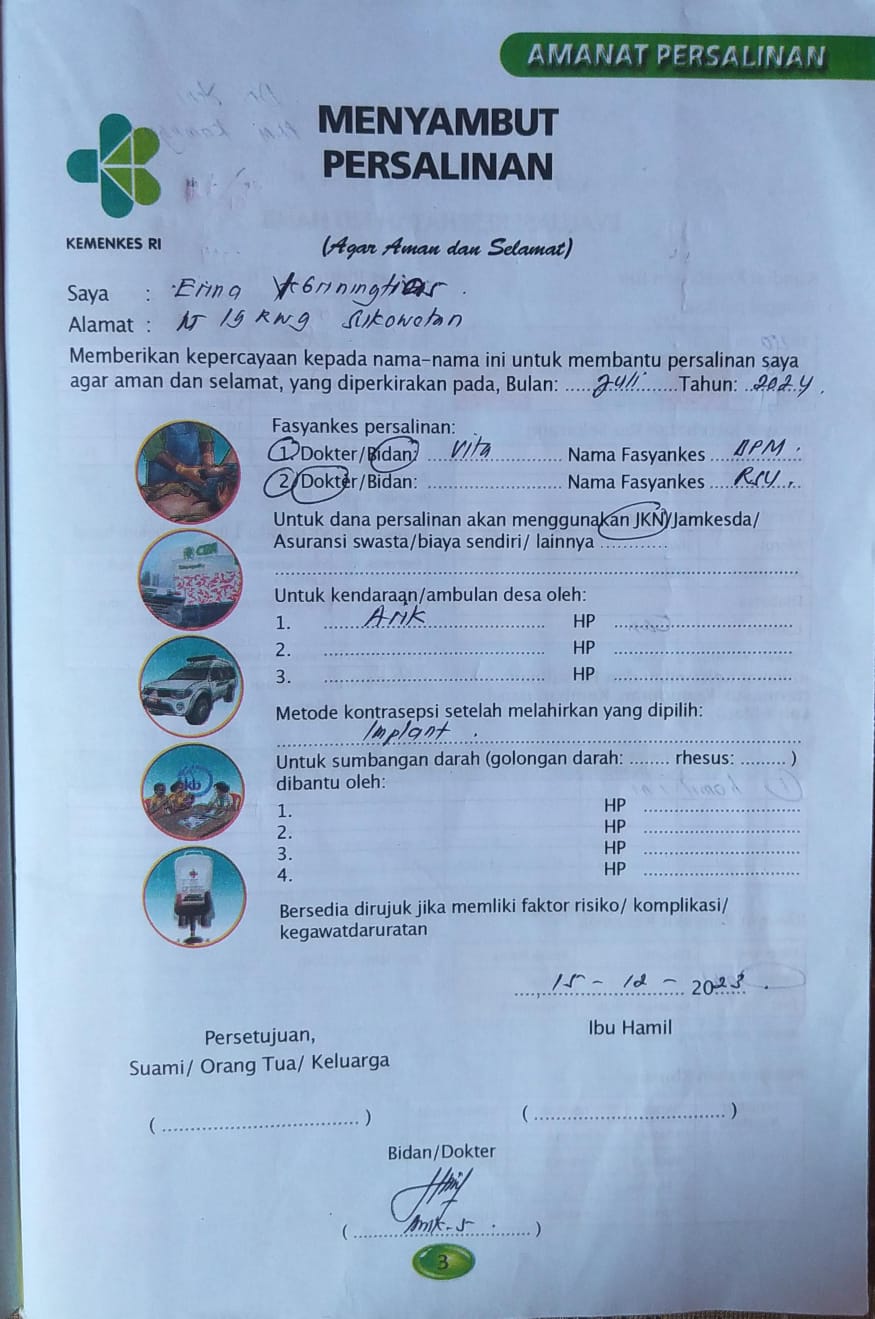 AMANAT PERSALINAN
MENYAMBUT
PERSALINAN
KEMENKES RI
(Agar Aman dan Selamat)
Saya : Erina
Alamat : 19 RWg Sukowetan
Memberikan kepercayaan kepada nama-nama ini untuk membantu persalinan saya
agar aman dan selamat, yang diperkirakan pada, Bulan: ..... Juli .......Tahun: ..2024.
Fasyankes persalinan:
1. Dokter/Bidan: ... Vita ............ Nama Fasyankes ....BPM..
2. Dokter/Bidan: ........................ Nama Fasyankes ....RSU...
Untuk dana persalinan akan menggunakan JKN/Jamkesda/
Asuransi swasta/biaya sendiri/ lainnya ............
Untuk kendaraan/ambulan desa oleh:
1. ....... Anik ........ HP ................
2. ........................ HP ................
3. ........................ HP ................
Metode kontrasepsi setelah melahirkan yang dipilih:
Implant .
Untuk sumbangan darah (golongan darah: ........ rhesus: ......... )
dibantu oleh:
1. HP ................
2. HP ................
3. HP ................
4. HP ................
Bersedia dirujuk jika memliki faktor risiko/ komplikasi/
kegawatdaruratan
....., 15 - 12 - 2023 .
Persetujuan,
Ibu Hamil
Suami/ Orang Tua/ Keluarga
( ................................ )
( ................................ )
Bidan/Dokter
( ....... Anik.S . ....... )
3